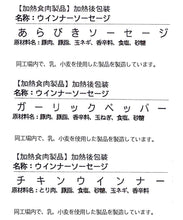 【加熱食肉製品】加熱後包装
名称：ウインナーソーセージ
あらびきソーセージ
原材料名：豚肉、豚脂、玉ネギ、香辛料、食塩、砂糖
同工場内で、乳、小麦を使用した製品を製造しています。
【加熱食肉製品】加熱後包装
名称：ウインナーソーセージ
ガーリックペッパー
原材料名：豚肉、豚脂、食塩、砂糖、玉ねぎ、香辛料
同工場内で、乳、小麦を使用した製品を製造しています。
【加熱食肉製品】加熱後包装
名称：ウインナーソーセージ
チキンウインナー
原材料名：とり肉、豚脂、食塩、砂糖、玉ねぎ、香辛料
同工場内で、乳、小麦を使用した製品を製造しています。